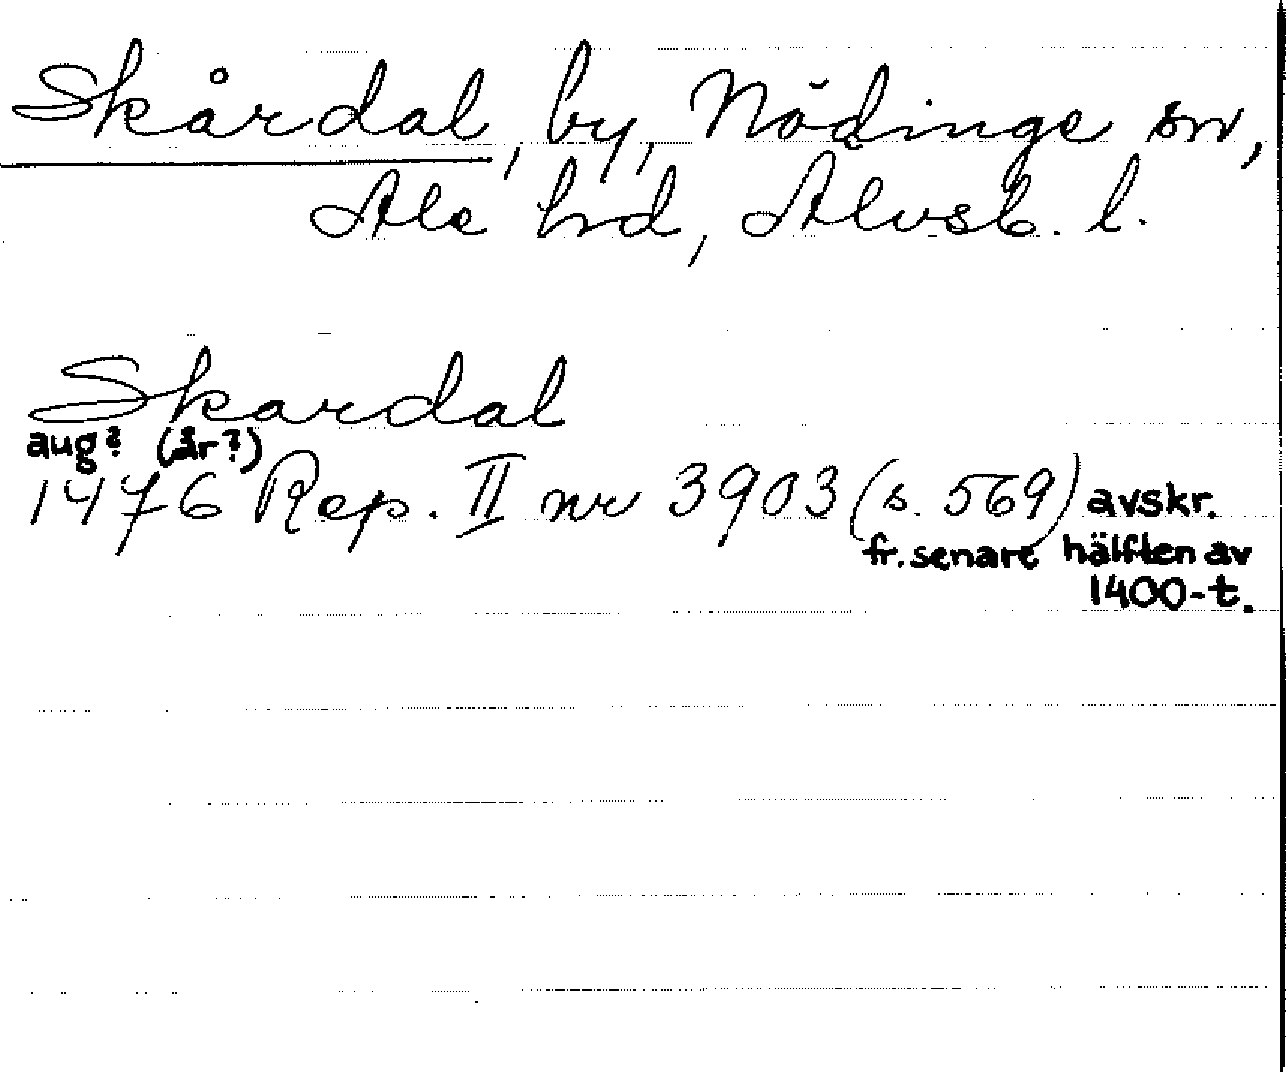 Skårdal, by, Nödinge sn,
Ale hd, Älvsb. l.
Skardal
aug? (år?)
1476 Rep. II nr 3903 (s. 569) avskr.
fr. senare hälften av
1400-t.